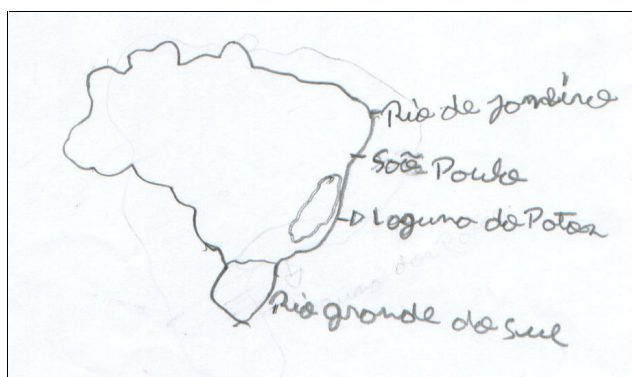 Rio de Janeiro
São Paulo
Laguna do Patos
Rio grande do sul